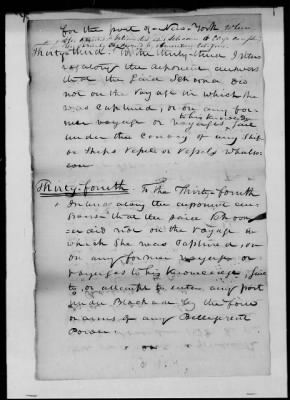 for the port of New-York
Thirty-third. To the thirty-third Inter-
rogatory the deponent answers
that the said Schooner did
not on the voyage in which she
was captured, or on any for-
mer voyage or voyages, sail
to his knowledge
under the Convoy of any Ship
or Ships Vessel or Vessels whatso-
ever
Thirty-fourth To the Thirty-fourth
the deponent an-
swers that the said Schoon-
er did not on the voyage in
which She was Captured, or
on any former voyage or
voyages to his knowledge,
to, or attempt to enter any port
under Blockade by the force
or arms of any Belligerent
Power